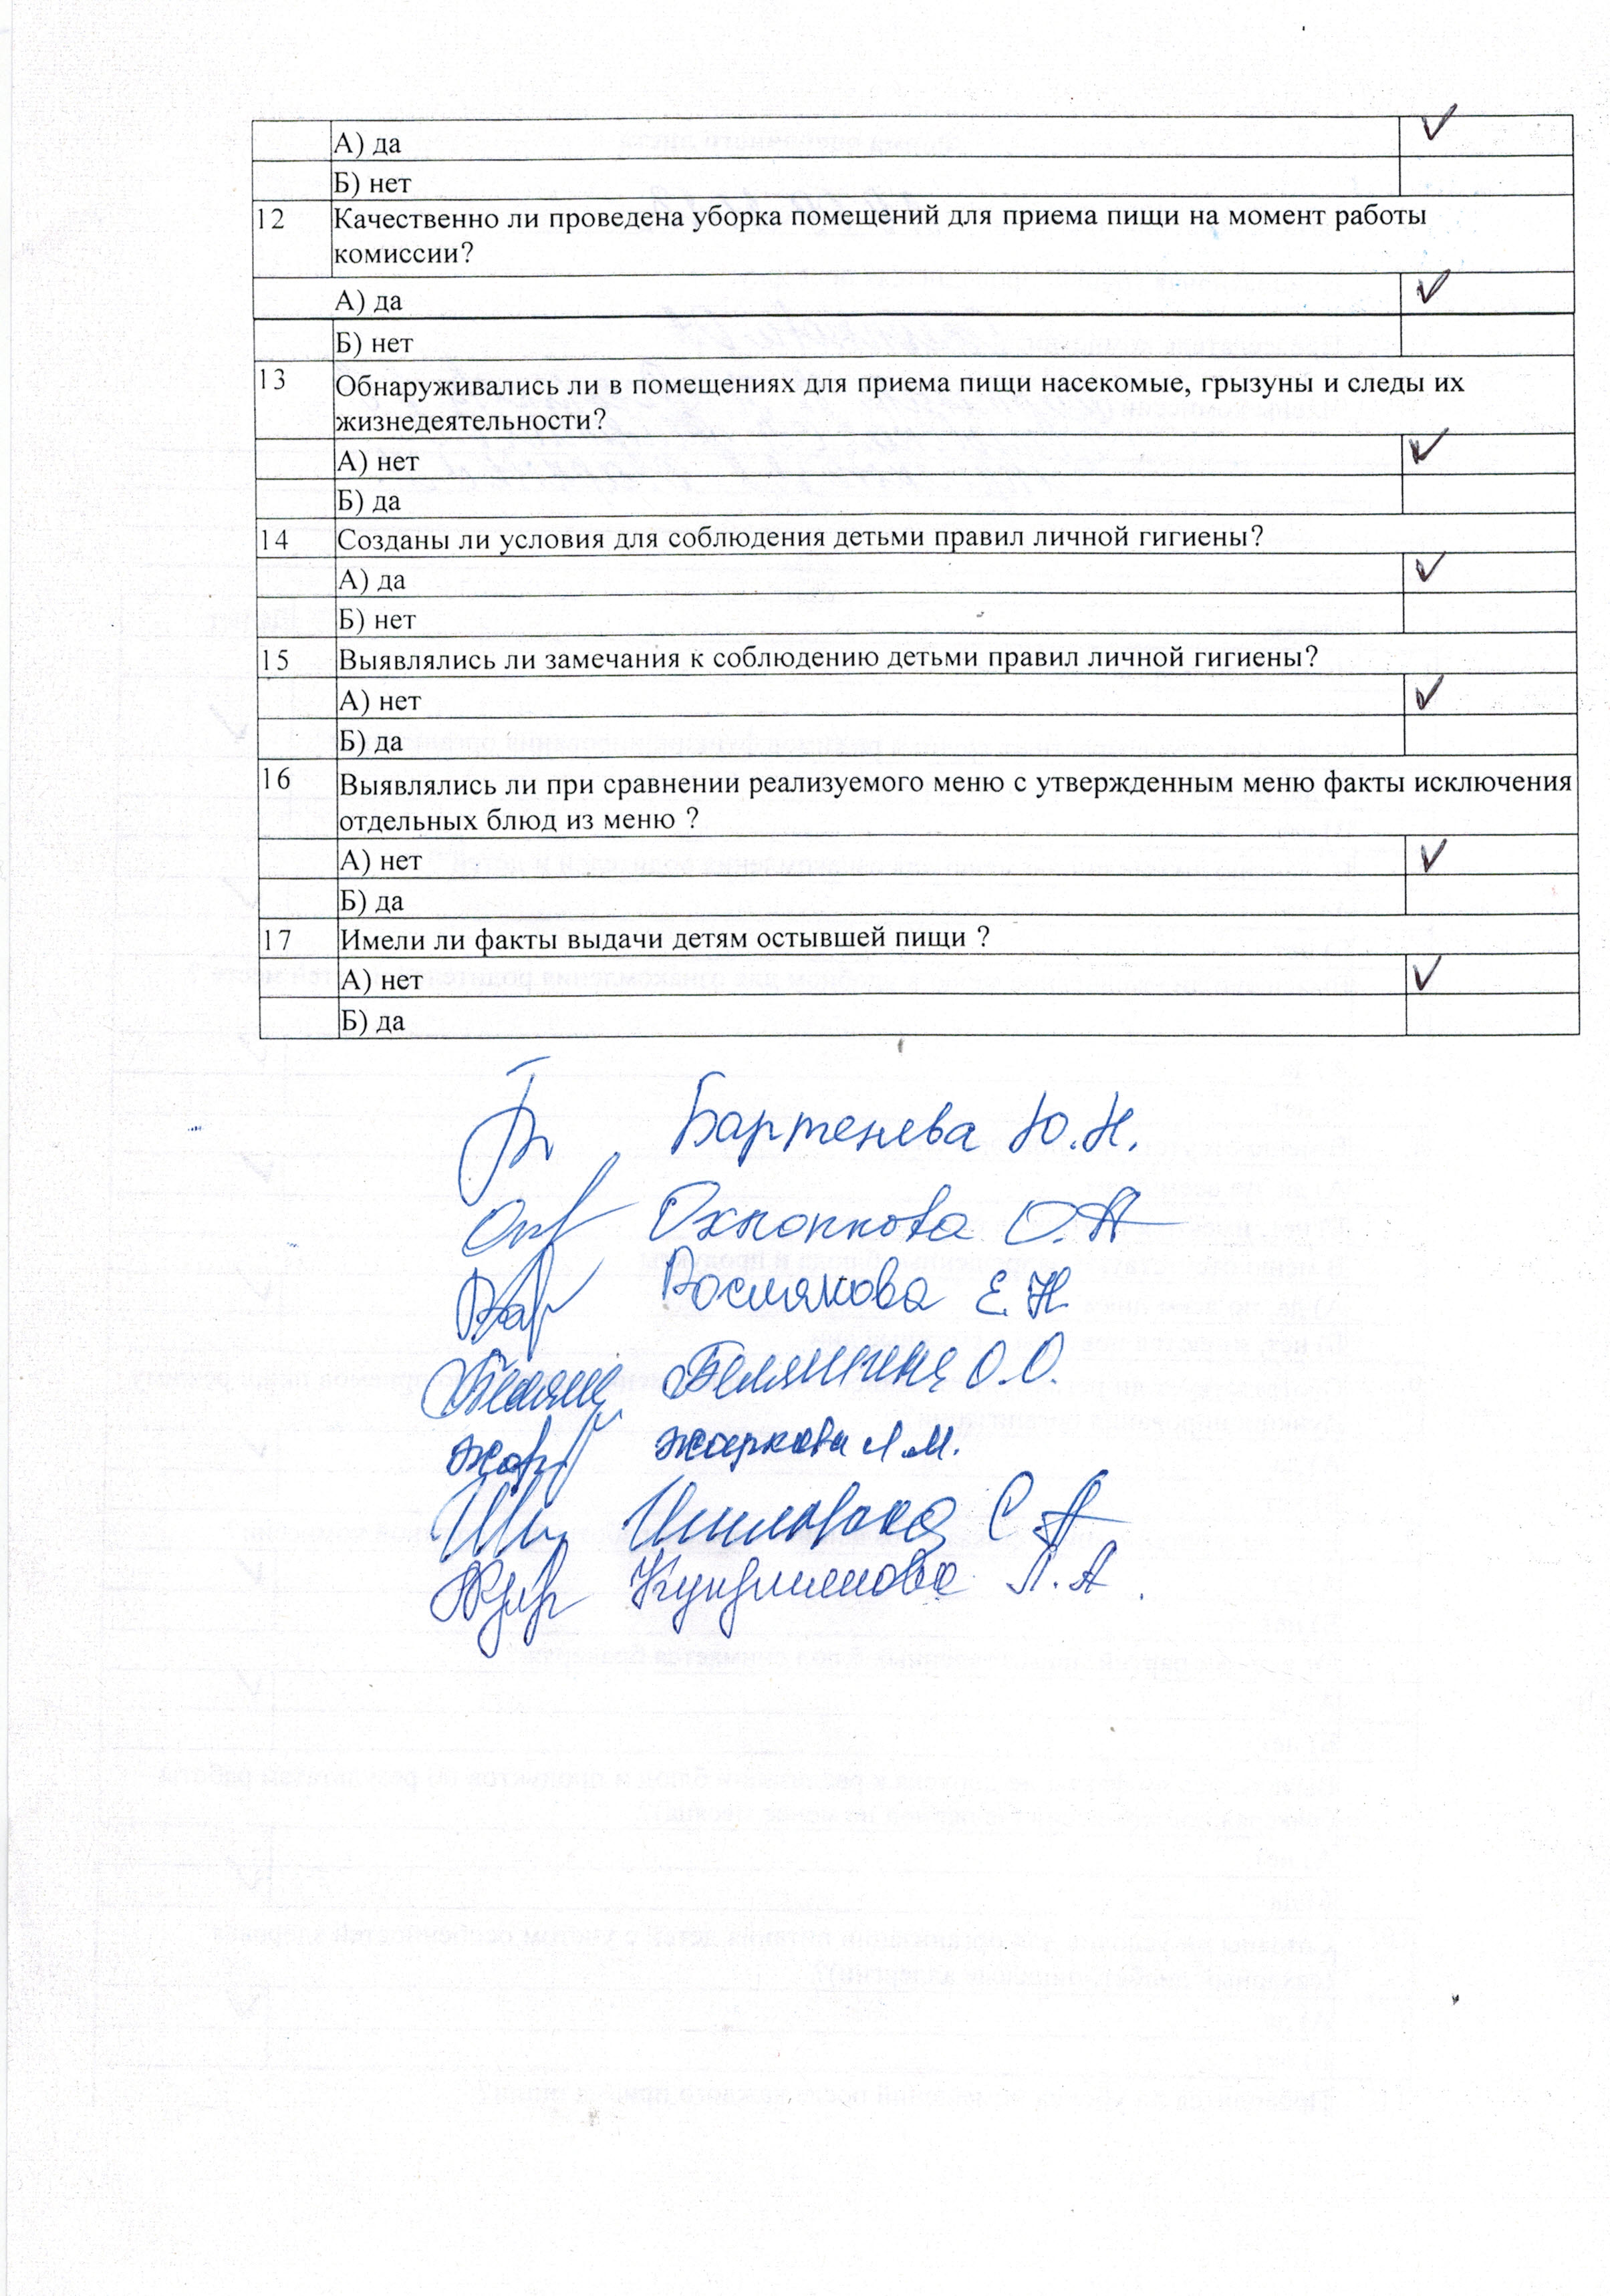 А) да ✓
Б) нет
12 Качественно ли проведена уборка помещений для приема пищи на момент работы
комиссии?
А) да ✓
Б) нет
13 Обнаруживались ли в помещениях для приема пищи насекомые, грызуны и следы их
жизнедеятельности?
А) нет ✓
Б) да
14 Созданы ли условия для соблюдения детьми правил личной гигиены?
А) да ✓
Б) нет
15 Выявлялись ли замечания к соблюдению детьми правил личной гигиены?
А) нет ✓
Б) да
16 Выявлялись ли при сравнении реализуемого меню с утвержденным меню факты исключения
отдельных блюд из меню ?
А) нет ✓
Б) да
17 Имели ли факты выдачи детям остывшей пищи ?
А) нет ✓
Б) да
Бартенева Ю.Н.
О.А
Рослякова Е.Н
О.О.
Жаркова Л.М.
С А
Л.А.